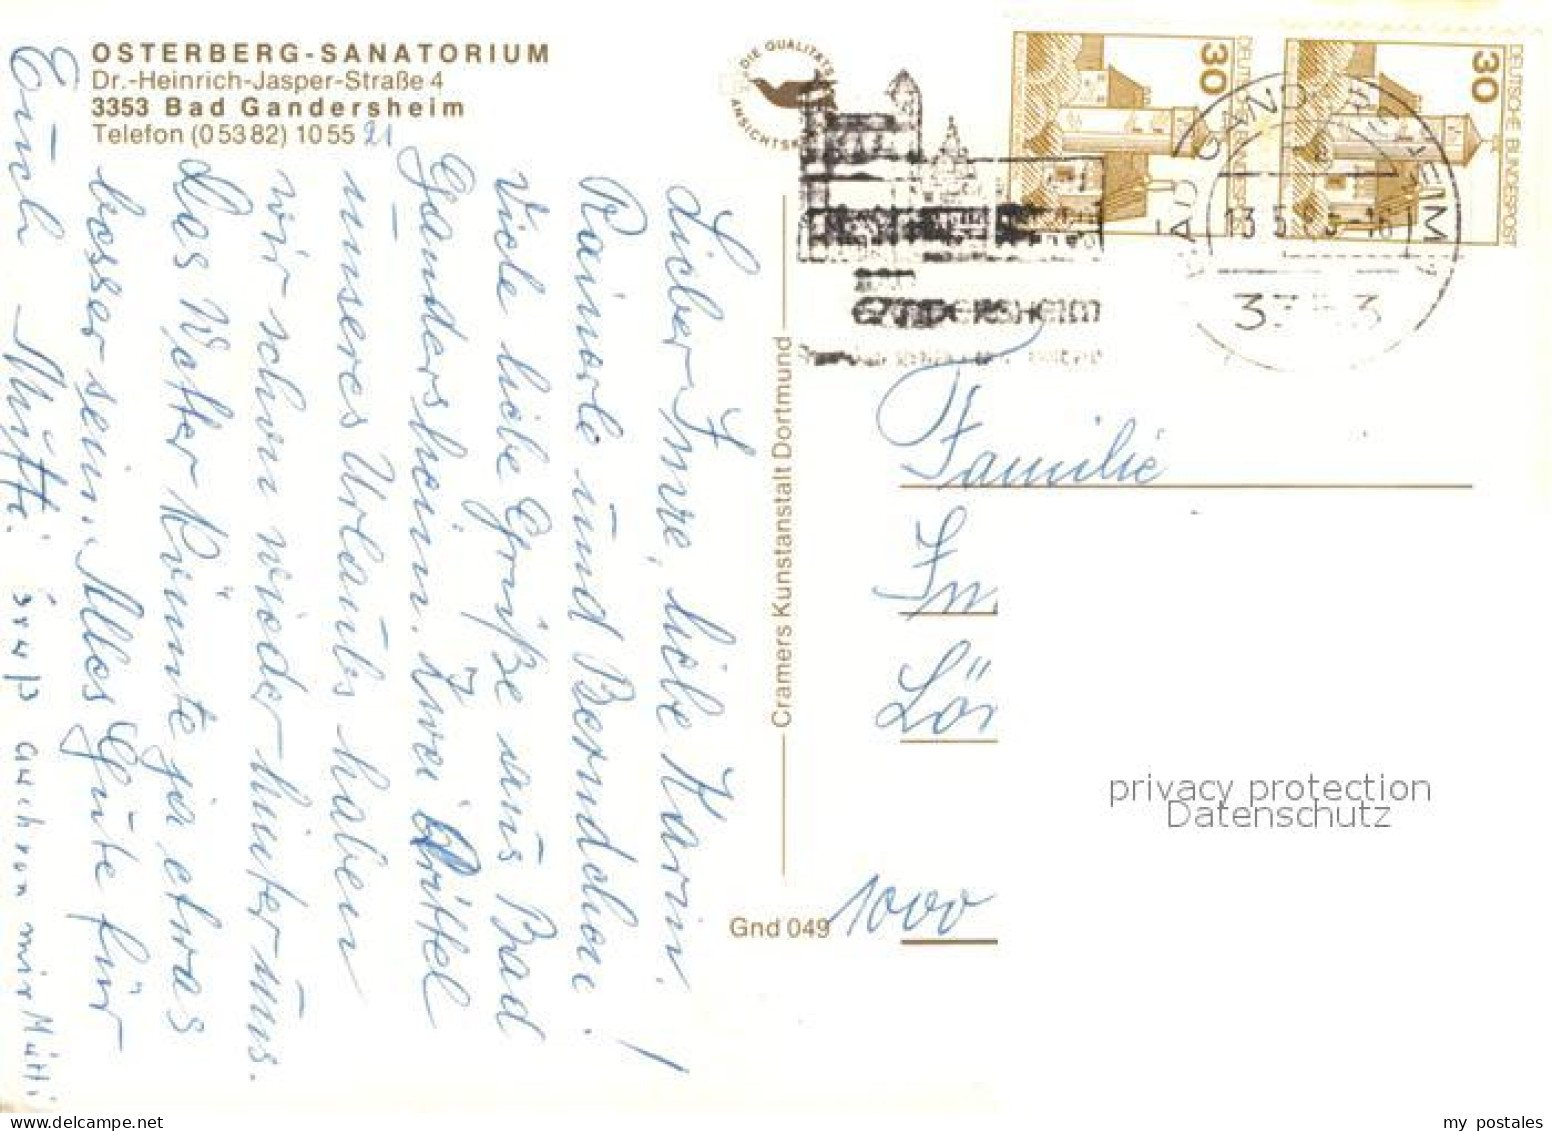 OSTERBERG-SANATORIUM
Dr.-Heinrich-Jasper-Straße 4
3353 Bad Gandersheim
Telefon (05382) 1055 21
Lieber Imre, liebe Karin!
Rainerle und Berndchen!
Viele liebe Grüße aus Bad
Gandersheim. Zwei Drittel
unseres Urlaubs haben
wir schon wieder hinter uns.
Das Wetter könnte ja etwas
besser sein. Alles Gute für
Euch Mutti.
Gruß auch von mir Mutti
Cramers Kunstanstalt Dortmund
DIE QUALITÄTS
ANSICHTSK
30
DEUTSCHE BUNDESPOST
30
DEUTSCHE BUNDESPOST
BAD GANDERSHEIM
13.5. -16
3353
BAD
GANDERSHEIM
Familie
Im
Lön
1000
Gnd 049
privacy protection
Datenschutz
my postales